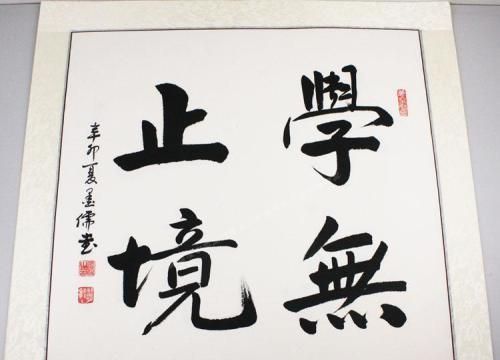 學無
止境
辛卯夏墨儒书